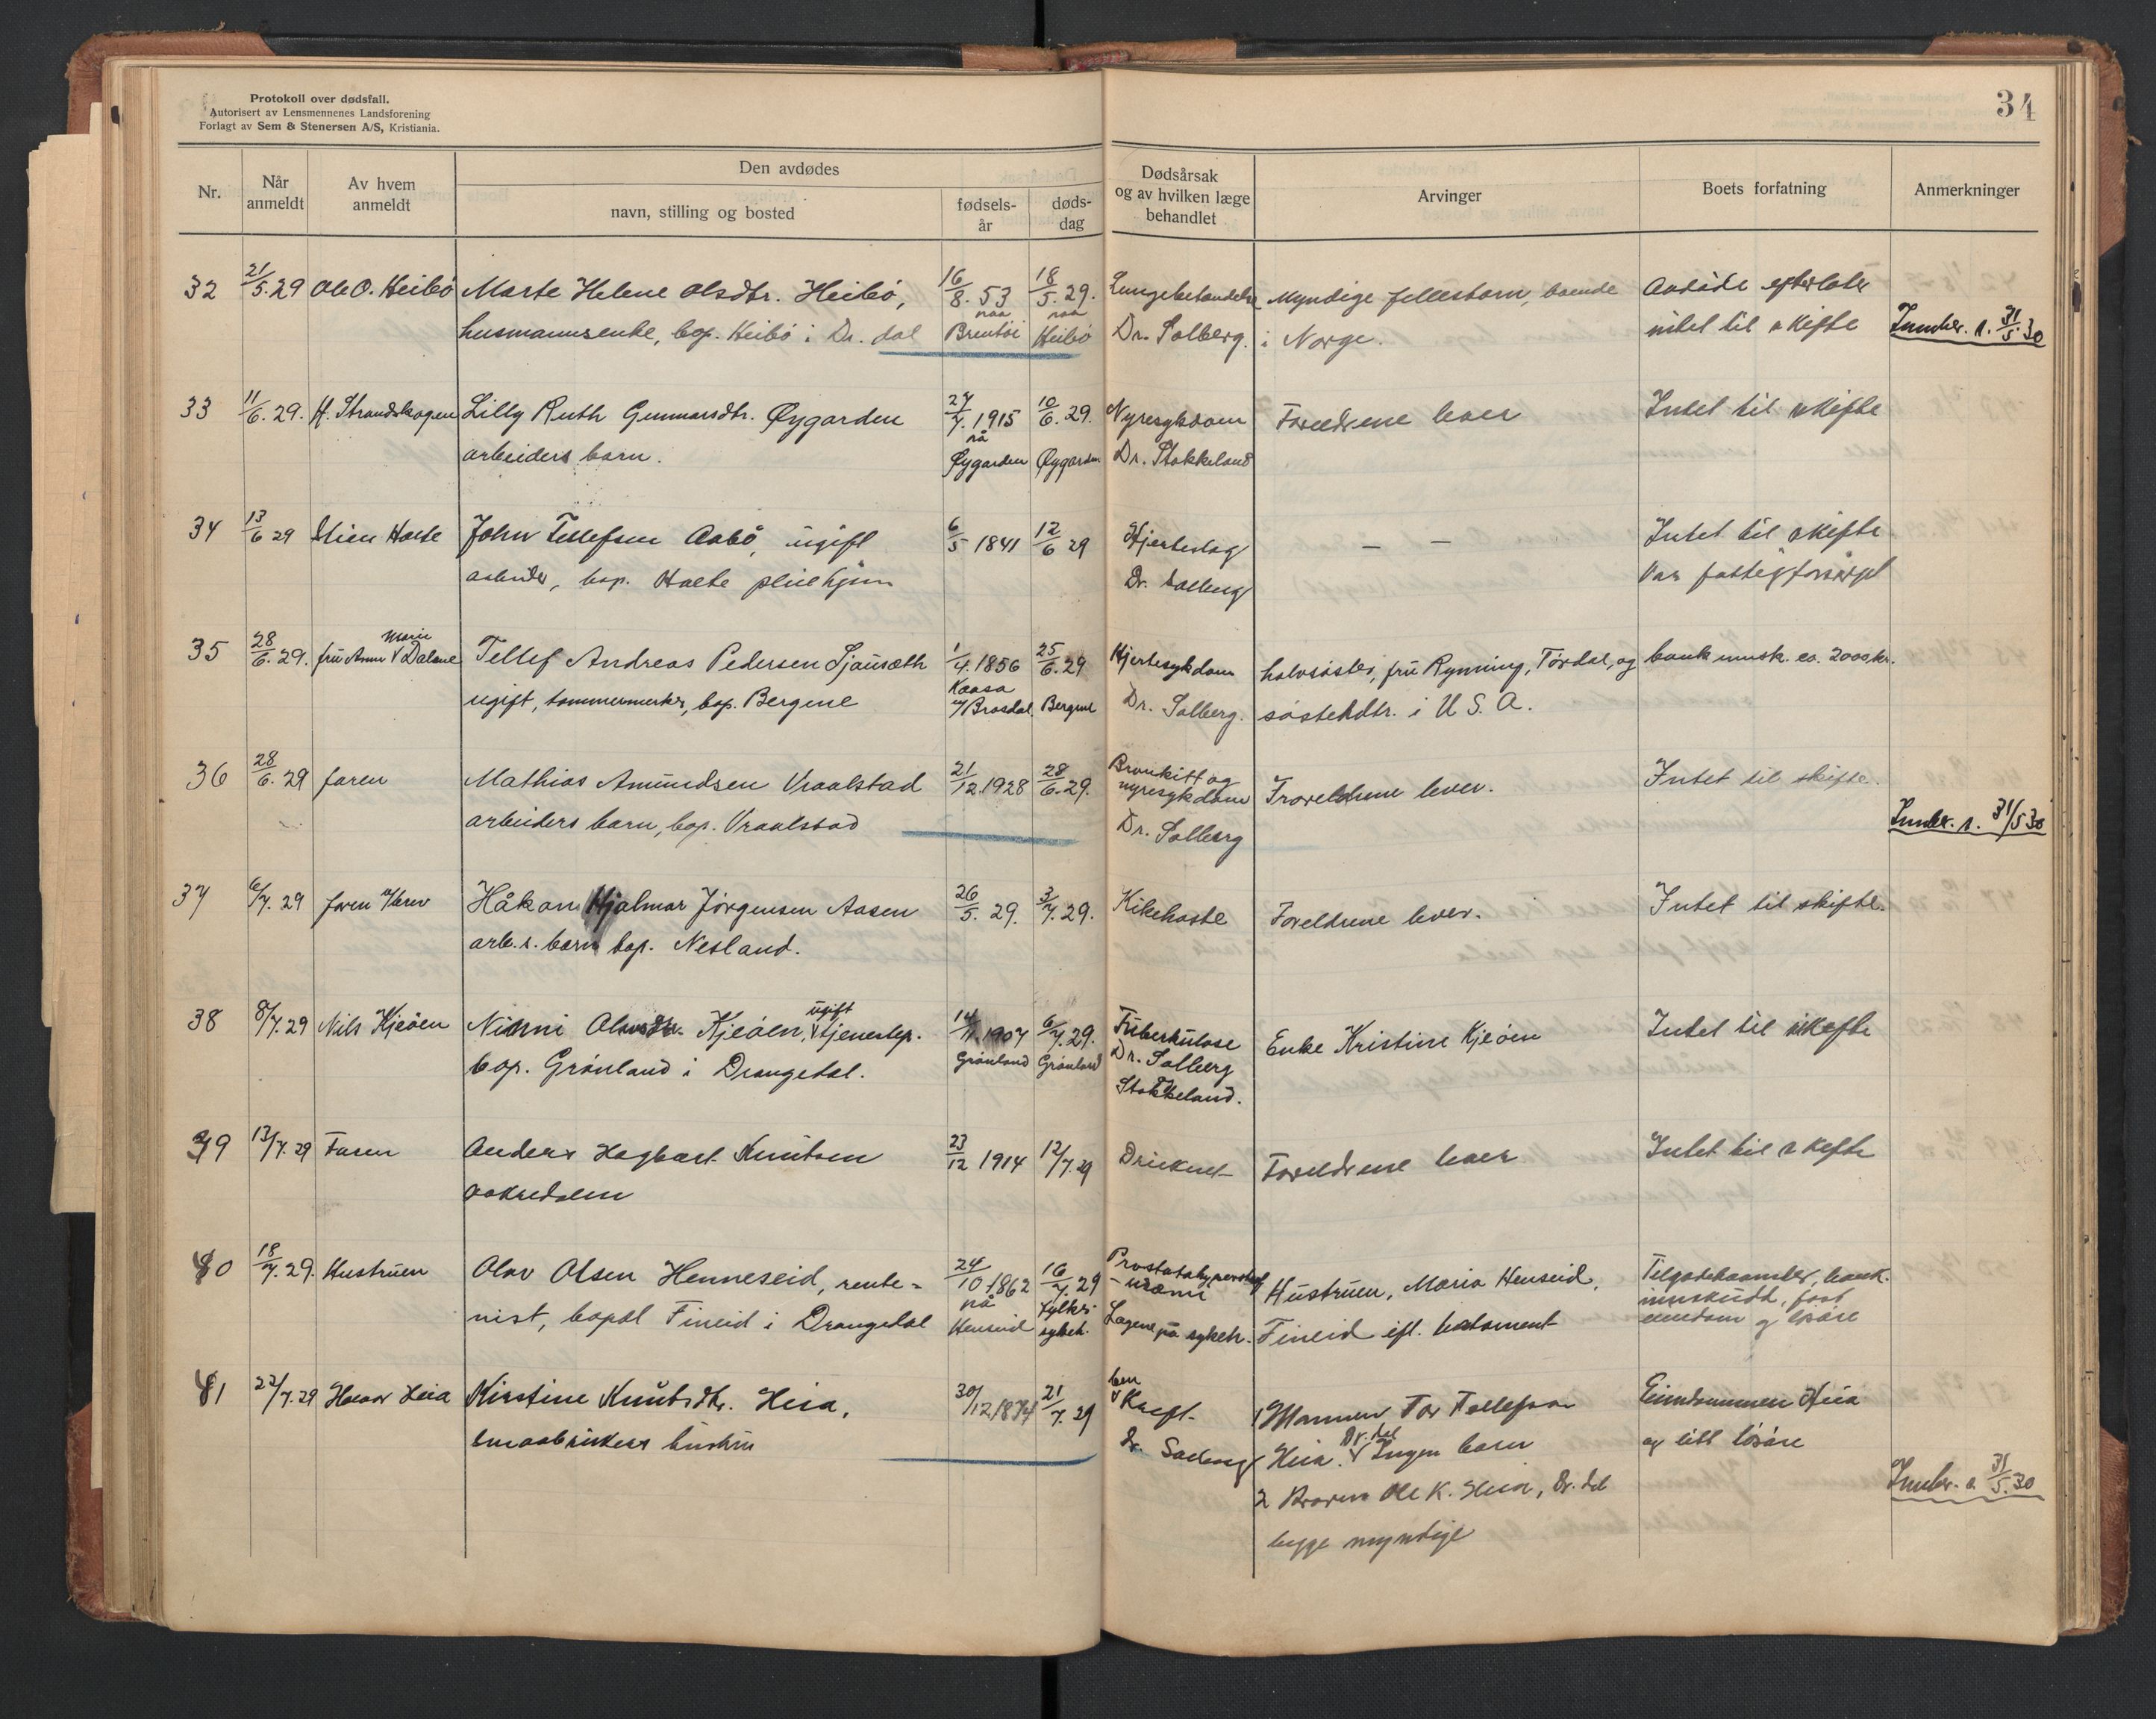 Protokoll over dødsfall.
Autorisert av Lensmennenes Landsforening
Forlagt av Sem & Stenersen A/S, Kristiania.
34
Nr.
Når anmeldt
Av hvem anmeldt
Den avdødes
navn, stilling og bosted
fødsels-år
døds-dag
Dødsårsak og av hvilken læge behandlet
Arvinger
Boets forfatning
Anmerkninger
32 21/5.29 Ole O. Heibö Marte Helene Olsdtr. Heibö, 16/8.53 18/5.29. Lungebetændelse Myndige fellesbarn, boende Avdöde efterlater
husmannsenke, bop. Heibö i Dr. dal paa Brentöi paa Heibö Dr. Solberg. i Norge. intet til skifte Innber. s. 31/5.30
33 11/6.29. H. Strandskogen Lilly Ruth Gunnarsdtr. Øygarden 1915 10/6.29. Nyresykdom Foreldrene lever Intet til skifte
arbeiders barn. på Øygarden Øygarden Dr. Stokkeland
34 13/6 29 Stien Holte John Tellefsen Aabö, ugift 6/5 1841 12/6 29 Hjerteslag — — Intet til skifte
arbeider, bop. Holte pleiehjem Dr. Solberg Var fattigforsörget
35 28/6.29. fru Anne Marie Dalane Tellef Andreas Pedersen Sjausæth 1/4.1856 25/6.29 Hjertesykdom halvsöster, fru Rynning, Tördal, og bankinnsk. ca. 2000 kr.
ugift, tømmermerker, bop. Bergene Kaasa u/Brosdal. Bergene Dr. Solberg. søsterdtr. i U.S.A.
36 28/6.29 faren Mathias Amundsen Vraalstad 21/12.1928 28/6.29. Bronkitt og nyresykdom Foreldrene lever. Intet til skifte.
arbeiders barn, bop. Vraalstad Dr. Solberg Innber. s. 31/5 30
37 6/7.29 faren i/brev Håkon Hjalmar Jörgensen Aasen 26/5.29. 3/7.29. Kikehoste Foreldrene lever. Intet til skifte.
arb.s. barn bop. Nesland.
38 8/7.29 Nils Kjeöen Ninni Olavsdtr. Kjeöen, ugift tjenestep. 1907 6/7.29. Tuberkulose Enke Kristine Kjeöen Intet til skifte
bop. Grönland i Drangedal. Grönland Grönland Dr. Solberg
Stokkeland.
39 13/7.29 Faren Anders Hagbart Knutsen 23/12 1914 12/7.29 Druknet Foreldrene lever Intet til skifte
Vokredalen
40 18/7.29. Hustruen Olav Olsen Henneseid, rente- 24/10 1862 16/7.29 Prostatahypertrof Hustruen, Maria Henseid, Tilgodehavender, bank-
nist, bopæl Fineid i Drangedal på Henseid fylkes sykeh. - uræmi Lægene på sykeh. Fineid ifl. testament innskudd, fast
eiendom og lösöre
41 22/7.29 Halvor Heia Kirstine Knutsdtr. Heia, 30/12.1874 21/7.29 ben Kreft. 1 Mannen Tor Tellefsen Eiendommen Heia
smaabrukers hustru Dr. Solberg Heia. Dr.dal Ingen barn og litt lösöre
2 Broren Ole K. Heia, Dr. dal Innber. s. 31/5.30
begge myndige